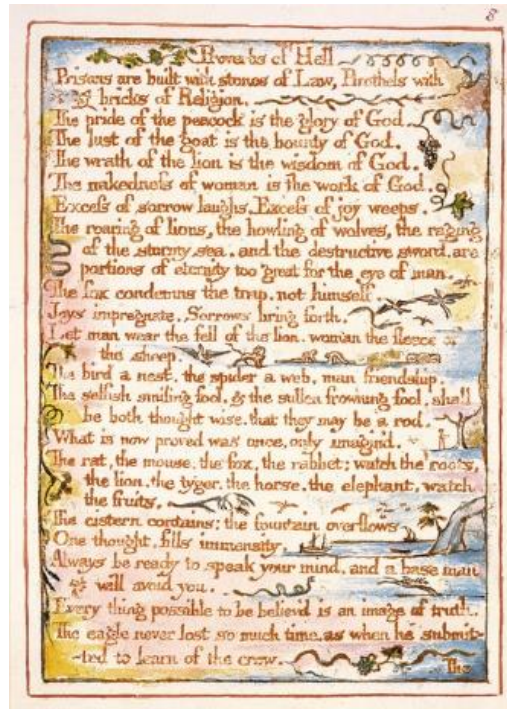 8
Proverbs of Hell
Prisons are built with stones of Law, Brothels with
bricks of Religion.
The pride of the peacock is the glory of God.
The lust of the goat is the bounty of God.
The wrath of the lion is the wisdom of God.
The nakedness of woman is the work of God.
Excess of sorrow laughs. Excess of joy weeps.
The roaring of lions, the howling of wolves, the raging
of the stormy sea, and the destructive sword, are
portions of eternity too great for the eye of man.
The fox condemns the trap, not himself.
Joys impregnate. Sorrows bring forth.
Let man wear the fell of the lion, woman the fleece of
the sheep.
The bird a nest, the spider a web, man friendship.
The selfish smiling fool, & the sullen frowning fool, shall
be both thought wise, that they may be a rod.
What is now proved was once, only imagin'd.
The rat, the mouse, the fox, the rabbet; watch the roots,
the lion, the tyger, the horse, the elephant, watch
the fruits.
The cistern contains; the fountain overflows
One thought, fills immensity.
Always be ready to speak your mind, and a base man
will avoid you.
Every thing possible to be believ'd is an image of truth.
The eagle never lost so much time, as when he submit-
-ted to learn of the crow.
The